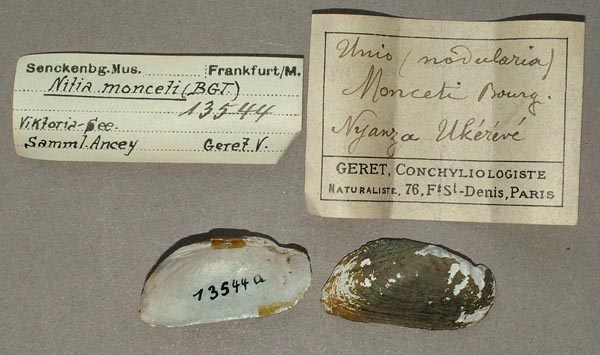 Senckenbg. Mus. Frankfurt/M.
Nitia monceti (BGT.)
13544
Viktoria-See.
Samml. Ancey Geret V.
Unio (nodularia)
Monceti Bourg.
Nyanza Ukérévé
GERET, CONCHYLIOLOGISTE
NATURALISTE, 76, Fg St-DENIS, PARIS
13544a